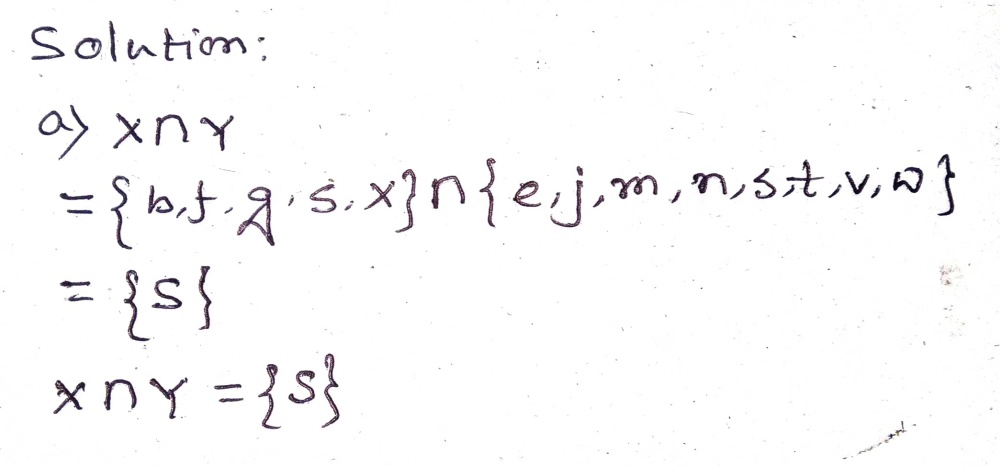 Solution:
a) X∩Y
= {b,f,g,s,x}∩{e,j,m,n,s,t,v,w}
= {s}
X∩Y = {s}